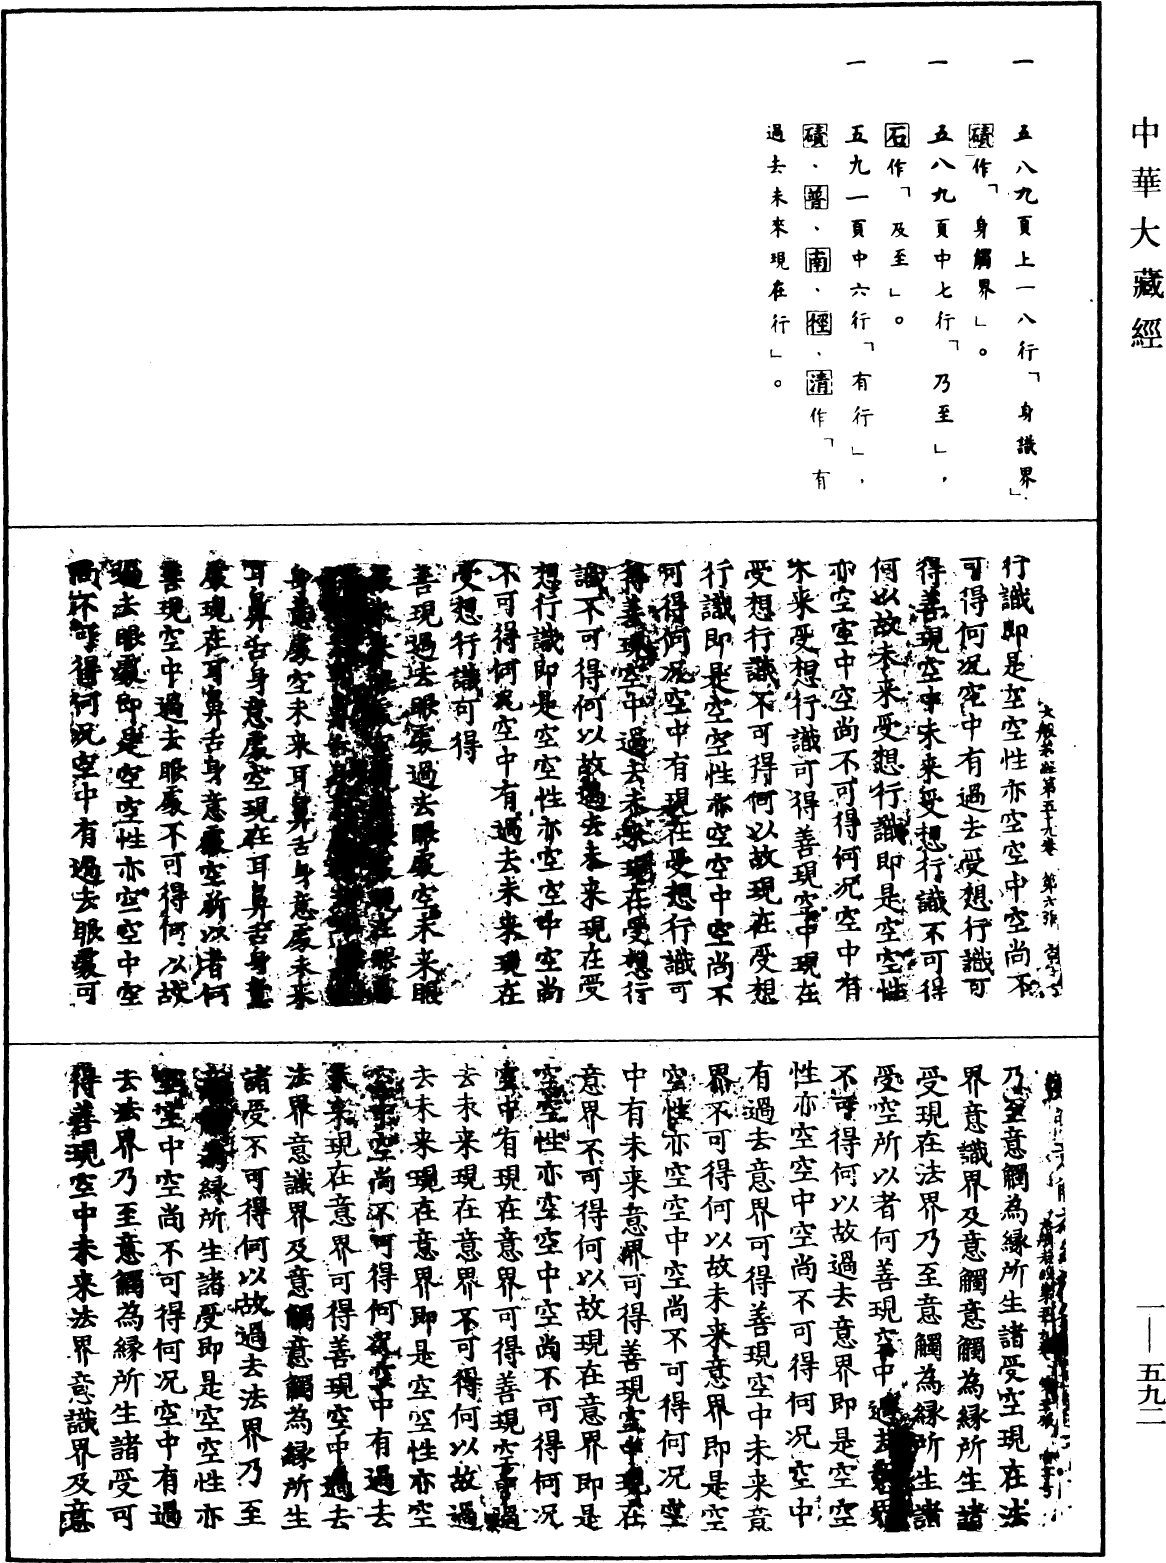 中華大藏經
一 五八九頁上一八行「身識界」，
磧作「身觸界」。
一 五八九頁中七行「乃至」，
石作「及至」。
一 五九一頁中六行「有行」，
磧、普、南、徑、清作「有
過去未來現在行」。
行識即是空空性亦空空中空尚不
可得何况空中有過去受想行識可
得善現空中未來受想行識不可得
何以故未來受想行識即是空空性
亦空空中空尚不可得何况空中有
未來受想行識可得善現空中現在
受想行識不可得何以故現在受想
行識即是空空性亦空空中空尚不
可得何况空中有現在受想行識可
得善現空中過去未來現在受想行
識不可得何以故過去未來現在受
想行識即是空空性亦空空中空尚
不可得何况空中有過去未來現在
受想行識可得
善現過去眼處過去眼處空未來眼
身意處空未來耳鼻舌身意處未來
耳鼻舌身意處空現在耳鼻舌身意
處現在耳鼻舌身意處空所以者何
善現空中過去眼處不可得何以故
過去眼處即是空空性亦空空中空
尚不可得何况空中有過去眼處可
大般若經第五十九卷 第六張
乃至意觸為緣所生諸受空現在法
界意識界及意觸意觸為緣所生諸
受現在法界乃至意觸為緣所生諸
受空所以者何善現空中過去意界
不可得何以故過去意界即是空空
性亦空空中空尚不可得何况空中
有過去意界可得善現空中未來意
界不可得何以故未來意界即是空
空性亦空空中空尚不可得何况空
中有未來意界可得善現空中現在
意界不可得何以故現在意界即是
空空性亦空空中空尚不可得何况
空中有現在意界可得善現空中過
去未來現在意界不可得何以故過
去未來現在意界即是空空性亦空
空中空尚不可得何况空中有過去
未來現在意界可得善現空中過去
法界意識界及意觸意觸為緣所生
諸受不可得何以故過去法界乃至
意觸為緣所生諸受即是空空性亦
空空中空尚不可得何况空中有過
去法界乃至意觸為緣所生諸受可
得善現空中未來法界意識界及意
一—五九二